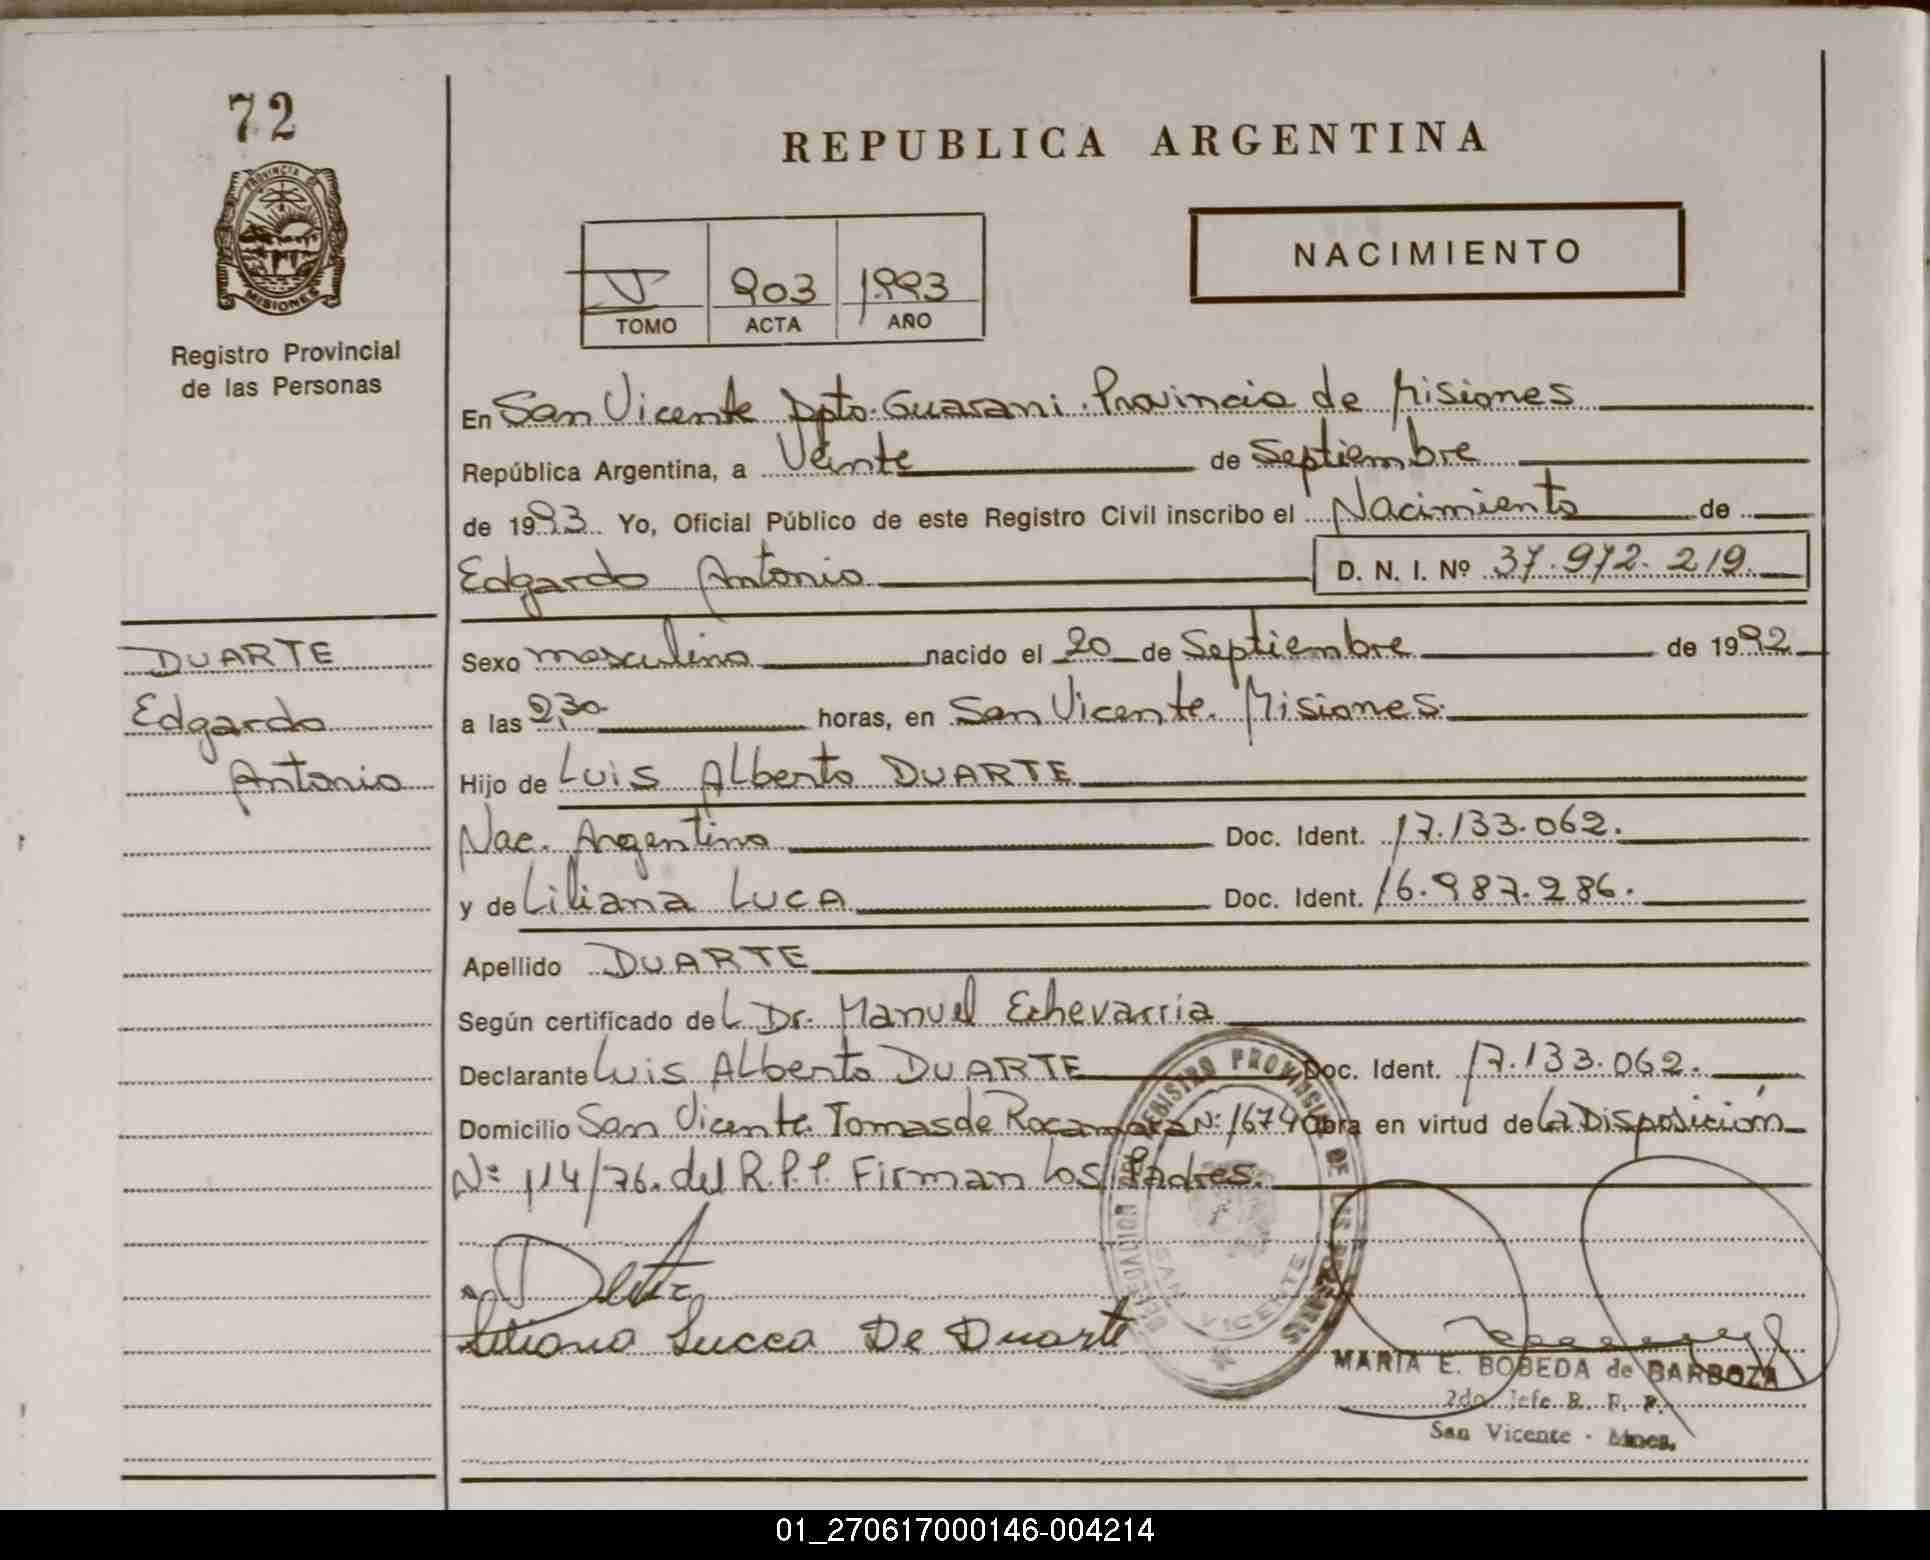 72
PROVINCIA DE
MISIONES
Registro Provincial
de las Personas
REPUBLICA ARGENTINA
V 903 1993
TOMO ACTA AÑO
NACIMIENTO
En San Vicente Dpto. Guarani. Provincia de Misiones
República Argentina, a Veinte de Septiembre
de 1993 Yo, Oficial Público de este Registro Civil inscribo el Nacimiento de
Edgardo Antonio D. N. I. Nº 37.972.219.
DUARTE
Edgardo
Antonio
Sexo masculino nacido el 20 de Septiembre de 1992
a las 2,30 horas, en San Vicente. Misiones.
Hijo de Luis Alberto DUARTE
Nac. Argentino Doc. Ident. 17.133.062.
y de Liliana LUCA Doc. Ident. 16.987.286.
Apellido DUARTE
Según certificado del Dr. Manuel Echevarria
Declarante Luis Alberto DUARTE Doc. Ident. 17.133.062.
Domicilio San Vicente. Tomas de Rocamora Nº 1674 Obra en virtud de La Disposición
Nº 114/76. del R.P.P. Firman los Padres.
Liliana Lucca De Duarte
DELEGACION REGISTRO PROVINCIAL DE LAS PERSONAS
SAN VICENTE
MARIA E. BOBEDA de BARBOZA
2do. Jefe R. P. P.
San Vicente - Mnes.
01_270617000146-004214